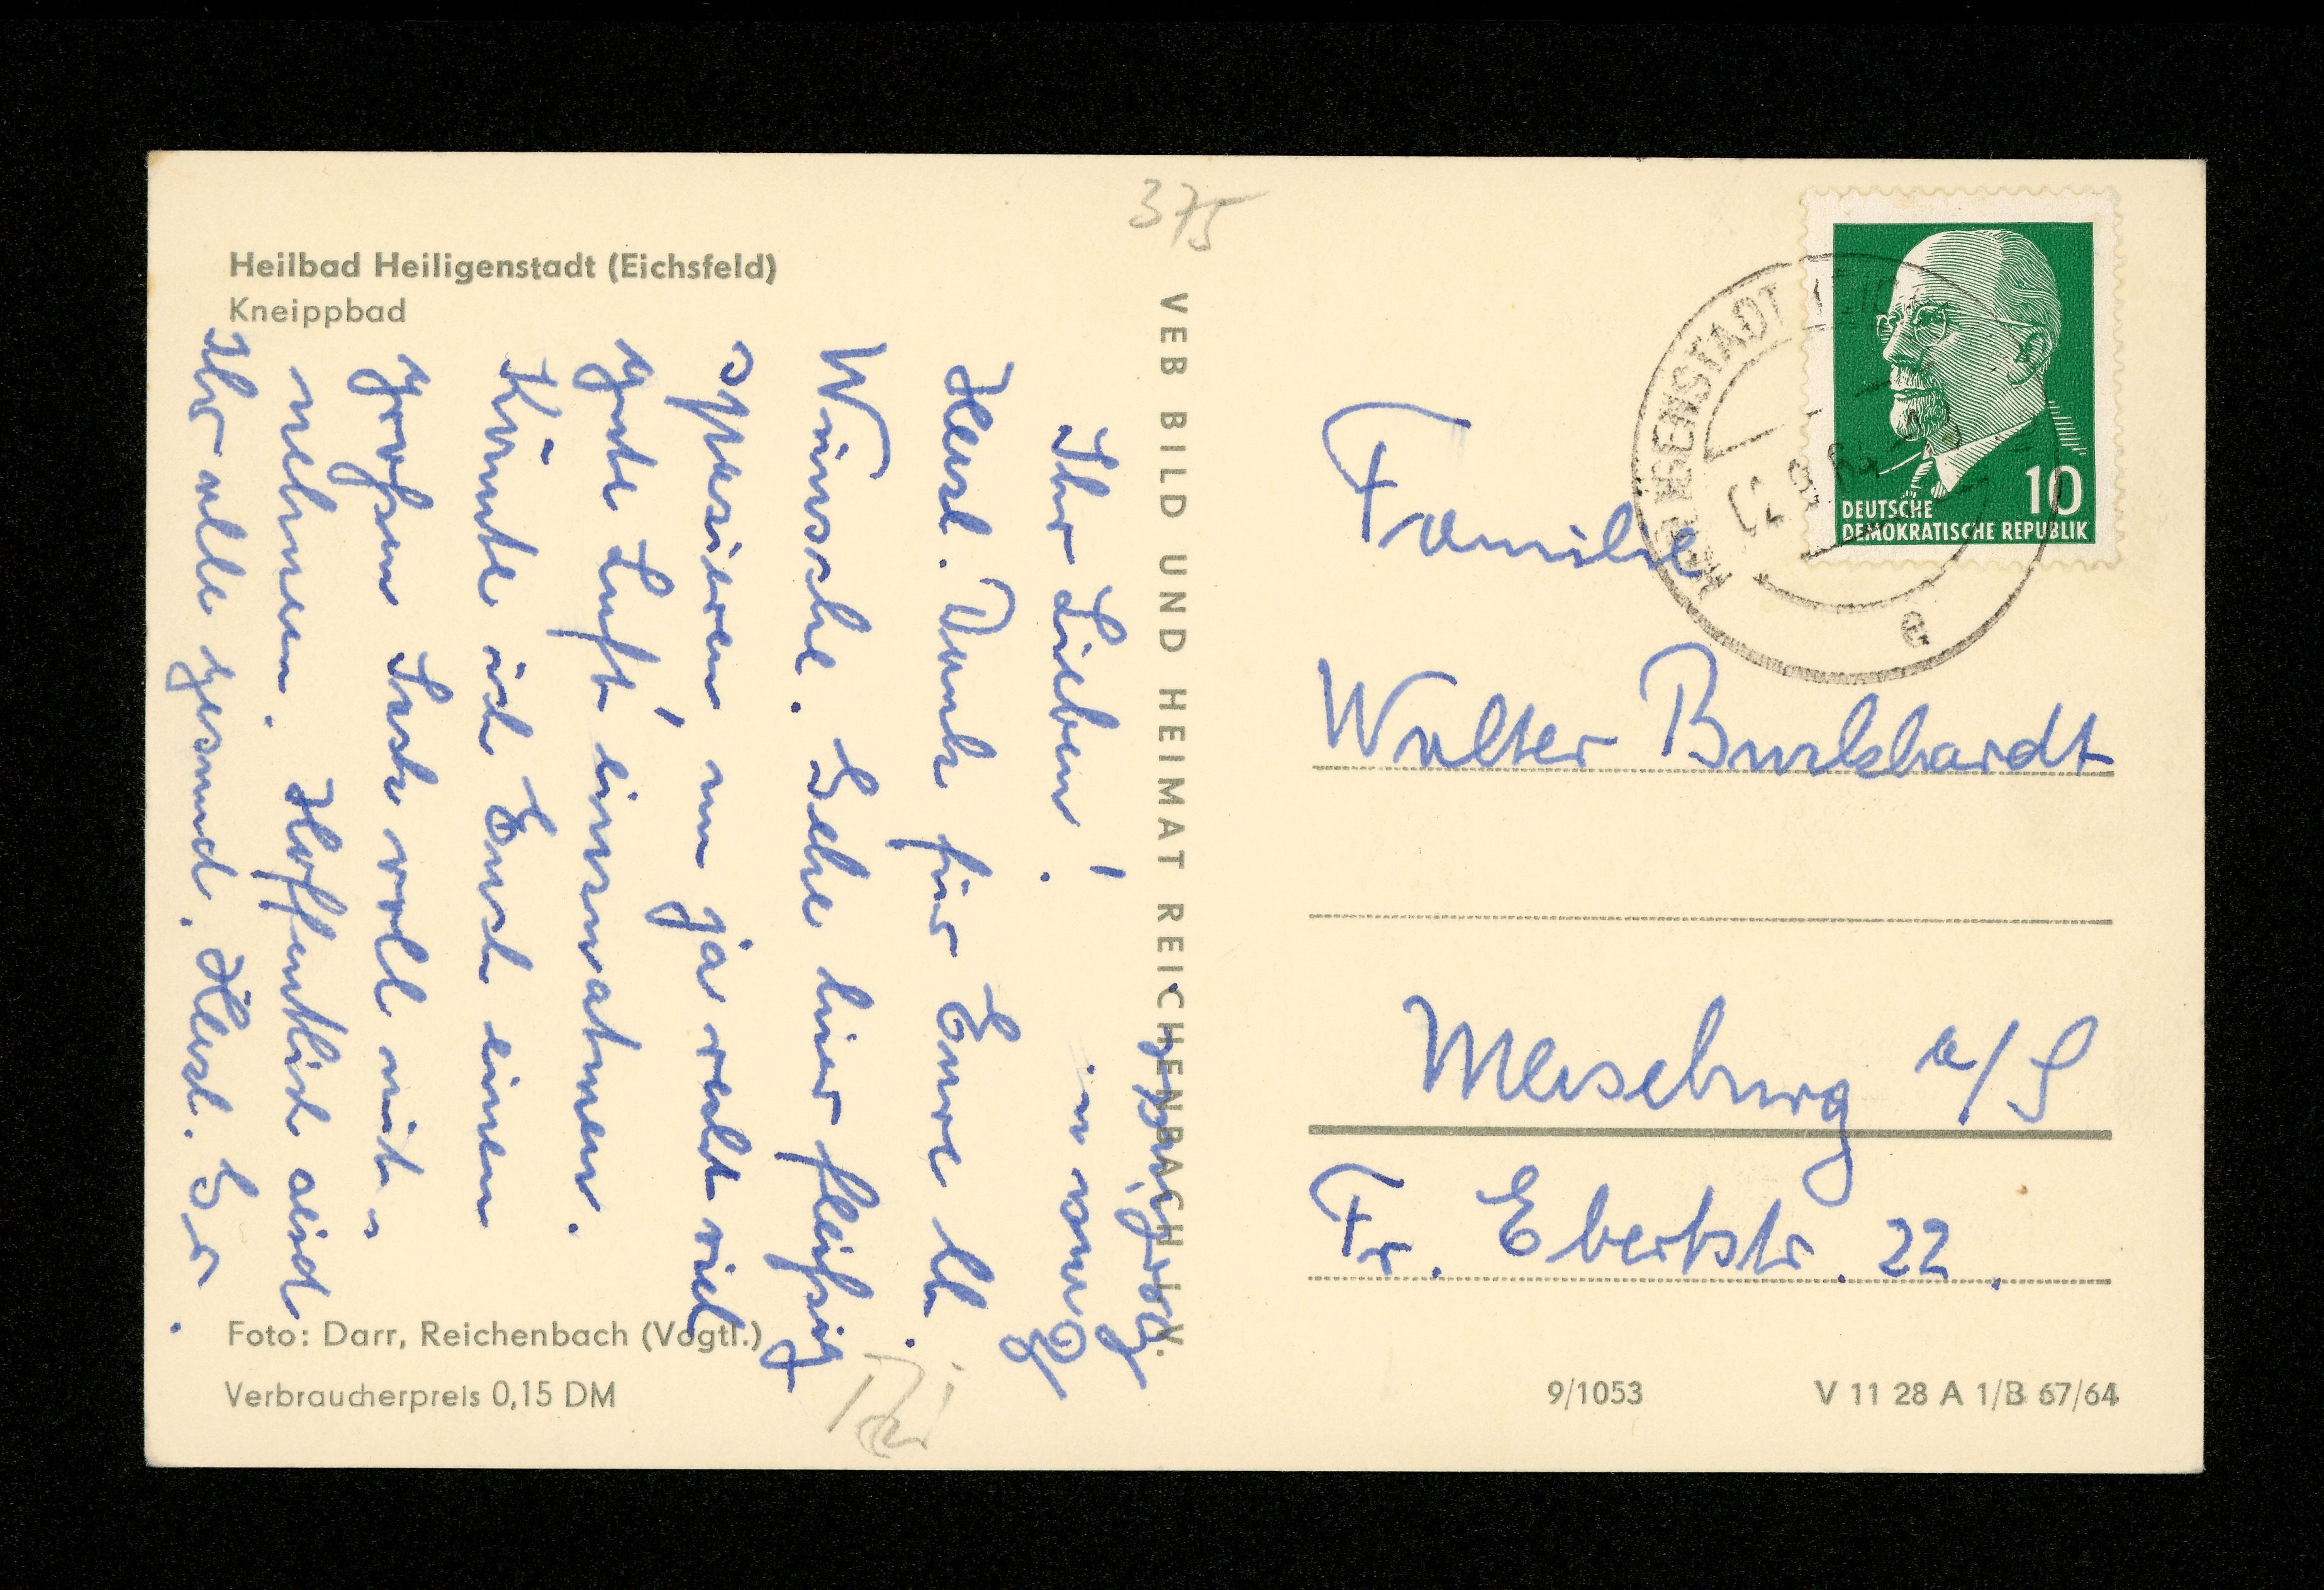 375
Heilbad Heiligenstadt (Eichsfeld)
Kneippbad
Ihr Lieben!
Herzl. Dank für Eure lb.
Wünsche. Gehe hier fleißig
spazieren um ja recht viel
gute Luft einzuatmen.
Könnte ich Euch einen
großen Sack voll mit-
nehmen. Hoffentlich seid
Ihr alle gesund. Herzl. Gr.
VEB BILD UND HEIMAT REICHENBACH I. V.
Foto: Darr, Reichenbach (Vogtl.)
Verbraucherpreis 0,15 DM
10
DEUTSCHE
DEMOKRATISCHE REPUBLIK
HEILIGENSTADT
a
Familie
Walter Burkhardt
Merseburg a/S
Fr. Ebertstr. 22.
9/1053
V 11 28 A 1/B 67/64